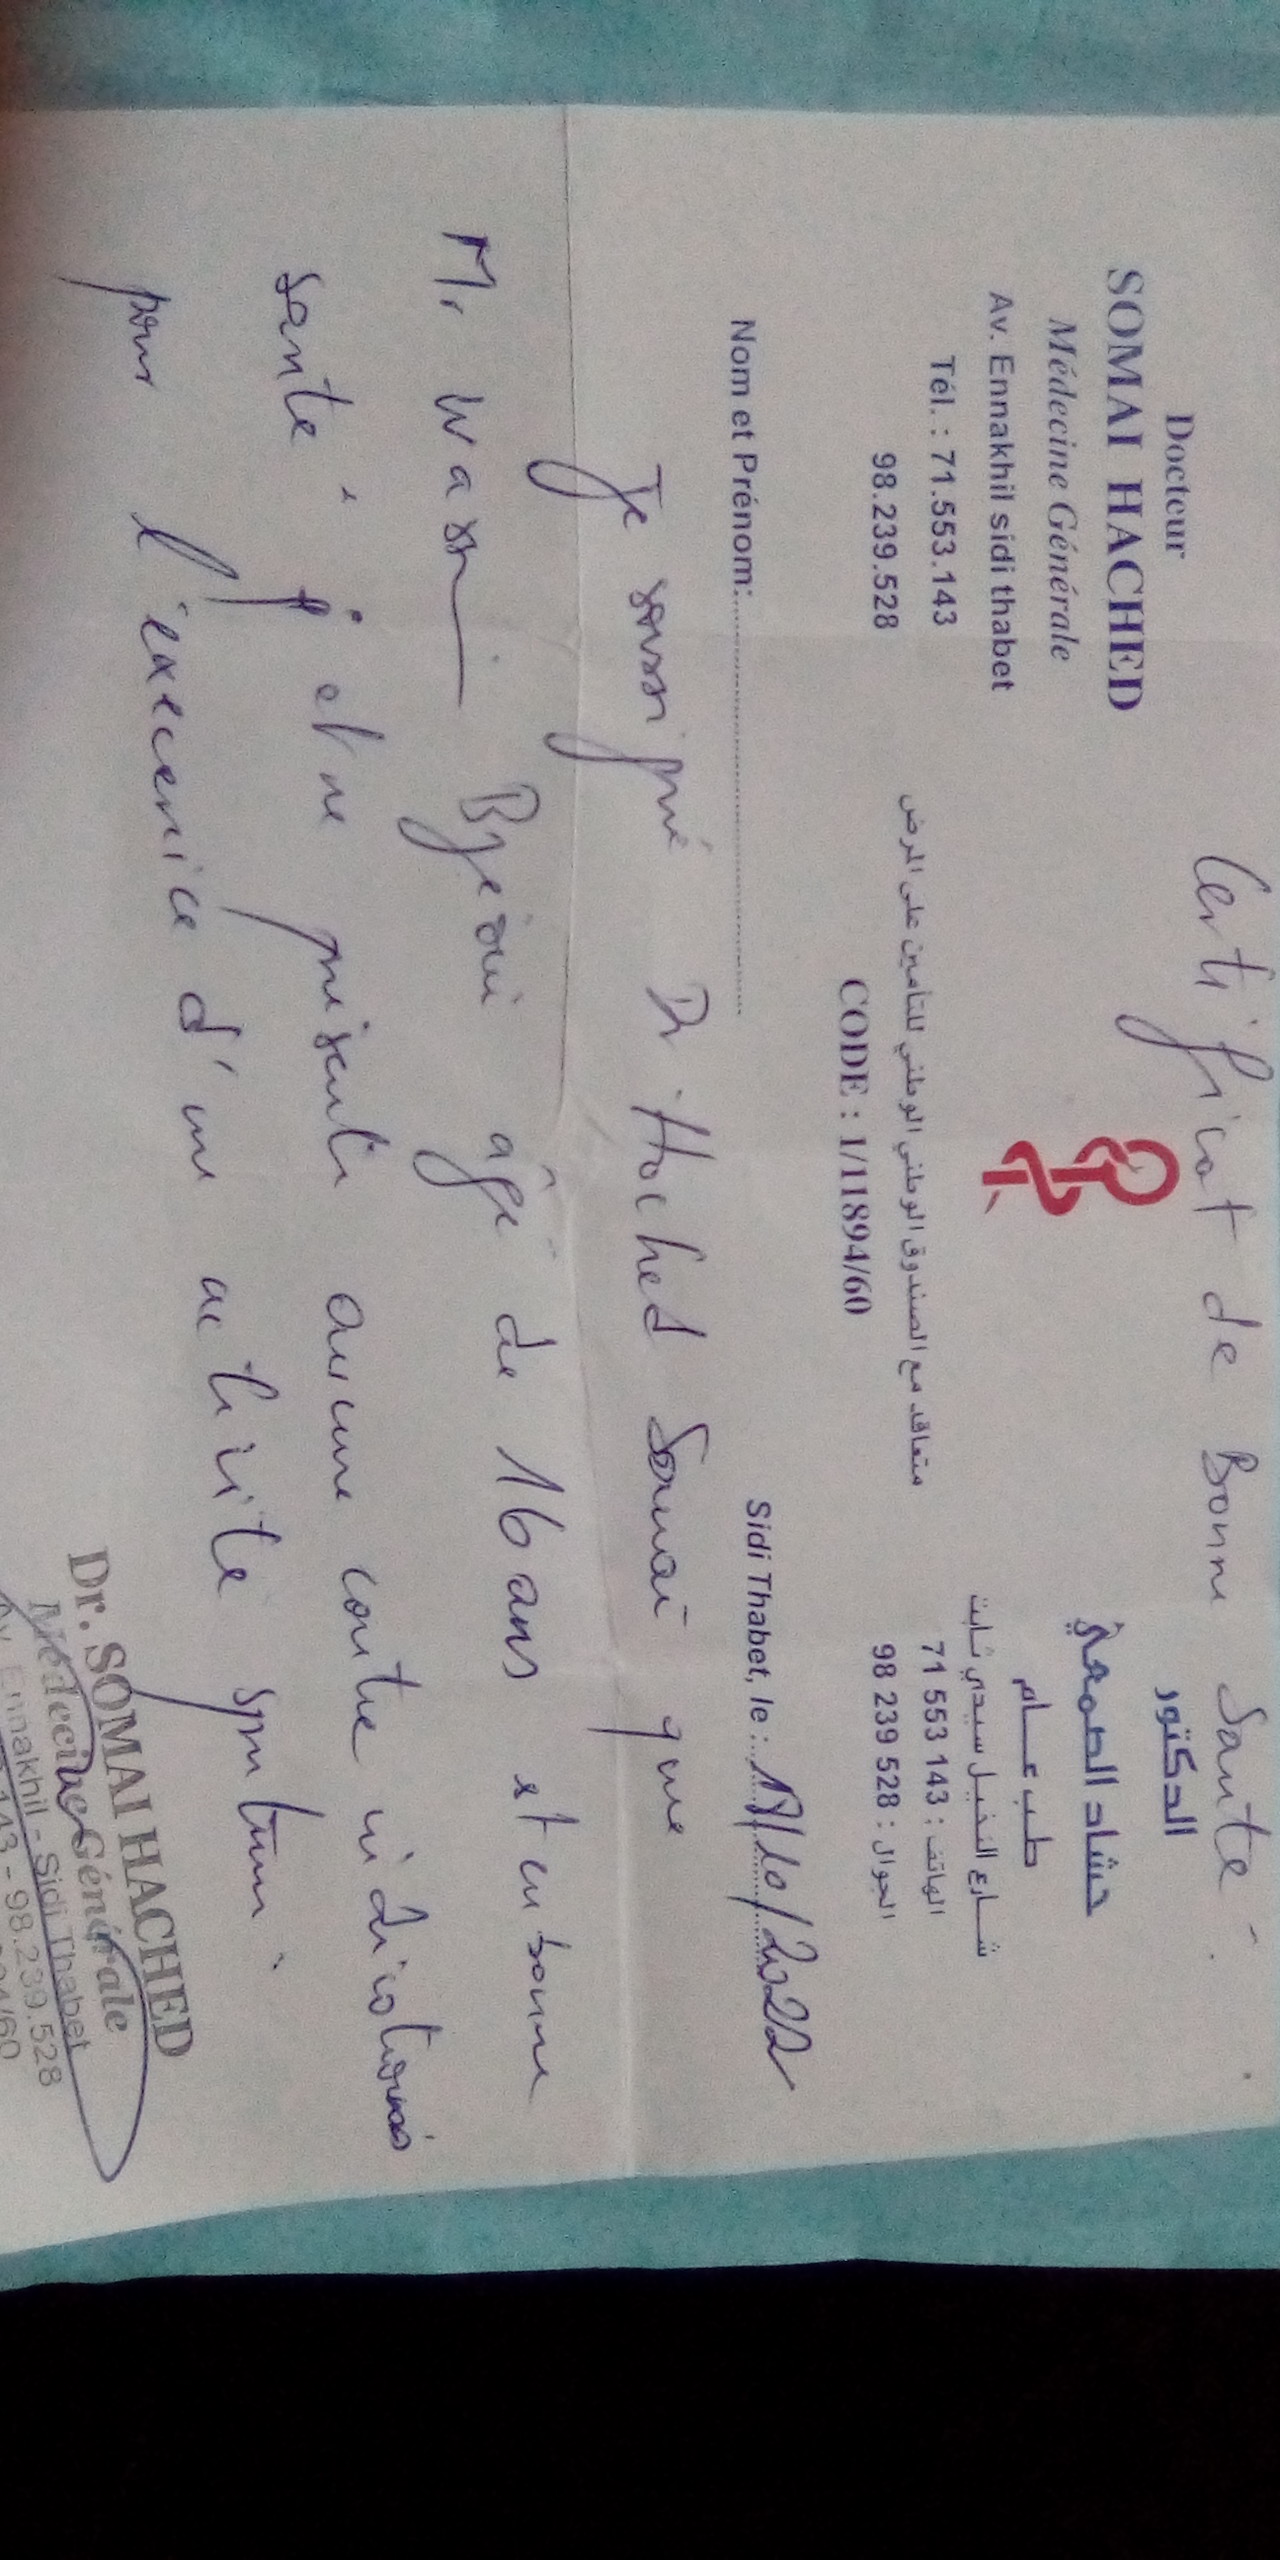 Certificat de Bonne Santé.
Docteur
SOMAI HACHED
Médecine Générale
Av. Ennakhil sidi thabet
Tél. : 71.553.143
98.239.528
الدكتور
حشاد الصمعي
طب عــام
شـــارع النخيـــل سيـــدي ثـــابت
الهاتف : 71 553 143
الجوال : 98 239 528
متعاقد مع الصندوق الوطني الوطني للتأمين على المرض
CODE : 1/11894/60
Nom et Prénom:
Sidi Thabet, le : 17/10/2022
Je soussigné Dr. Hached Somai que
Mr Bjeoui âgé de 16 ans et en bonne
santé et ne présente aucune contre indications
pour l'exercice d'une activité
Dr. SOMAI HACHED
Médecine Générale
Av. Ennakhil - Sidi Thabet
143 - 98.239.528